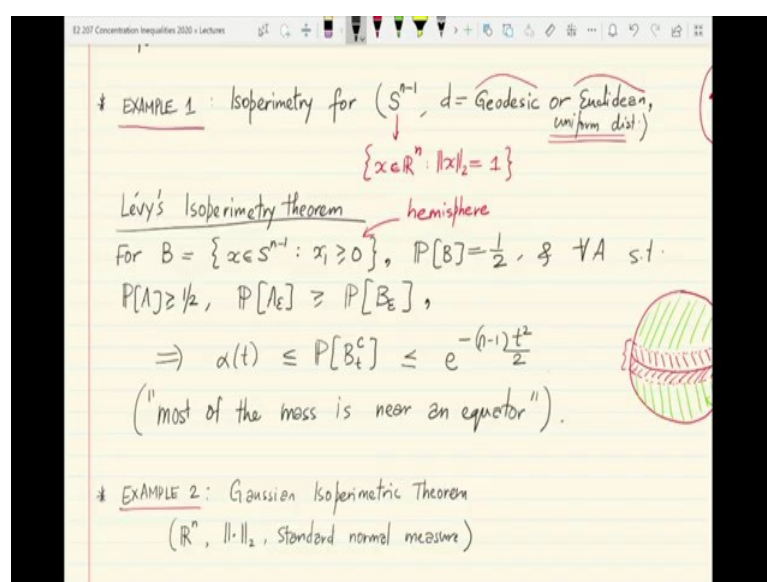 E2 207 Concentration Inequalities 2020 » Lectures
* EXAMPLE 1 : Isoperimetry for (S^{n-1}, d = Geodesic or Euclidean,
uniform dist.)
{x ∈ ℝ^n : ||x||_2 = 1}
Lévy's Isoperimetry theorem
hemisphere
For B = {x ∈ S^{n-1} : x_1 ≥ 0}, ℙ[B] = 1/2, & ∀A s.t.
ℙ[A] ≥ 1/2, ℙ[A_ε] ≥ ℙ[B_ε],
⇒ α(t) ≤ ℙ[B_t^c] ≤ e^{-(n-1)t^2/2}
("most of the mass is near an equator").
* EXAMPLE 2 : Gaussian Isoperimetric Theorem
(ℝ^n, ||·||_2, Standard normal measure)